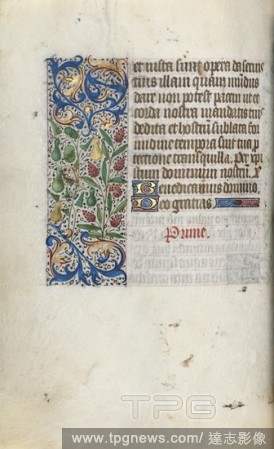 et iusta sunt opera da seruis
tuis illam quam mundus
dare non potest pacem ut et
corda nostra mandatis tuis
dedita et hostium sublata for
midine tempora sint tua p
tectione tranquilla. per xp̄i
stum dominum nostrum.
Benedicamus domino.
Deo gratias
Prime.
TPG
www.tpgnews.com / 達志影像